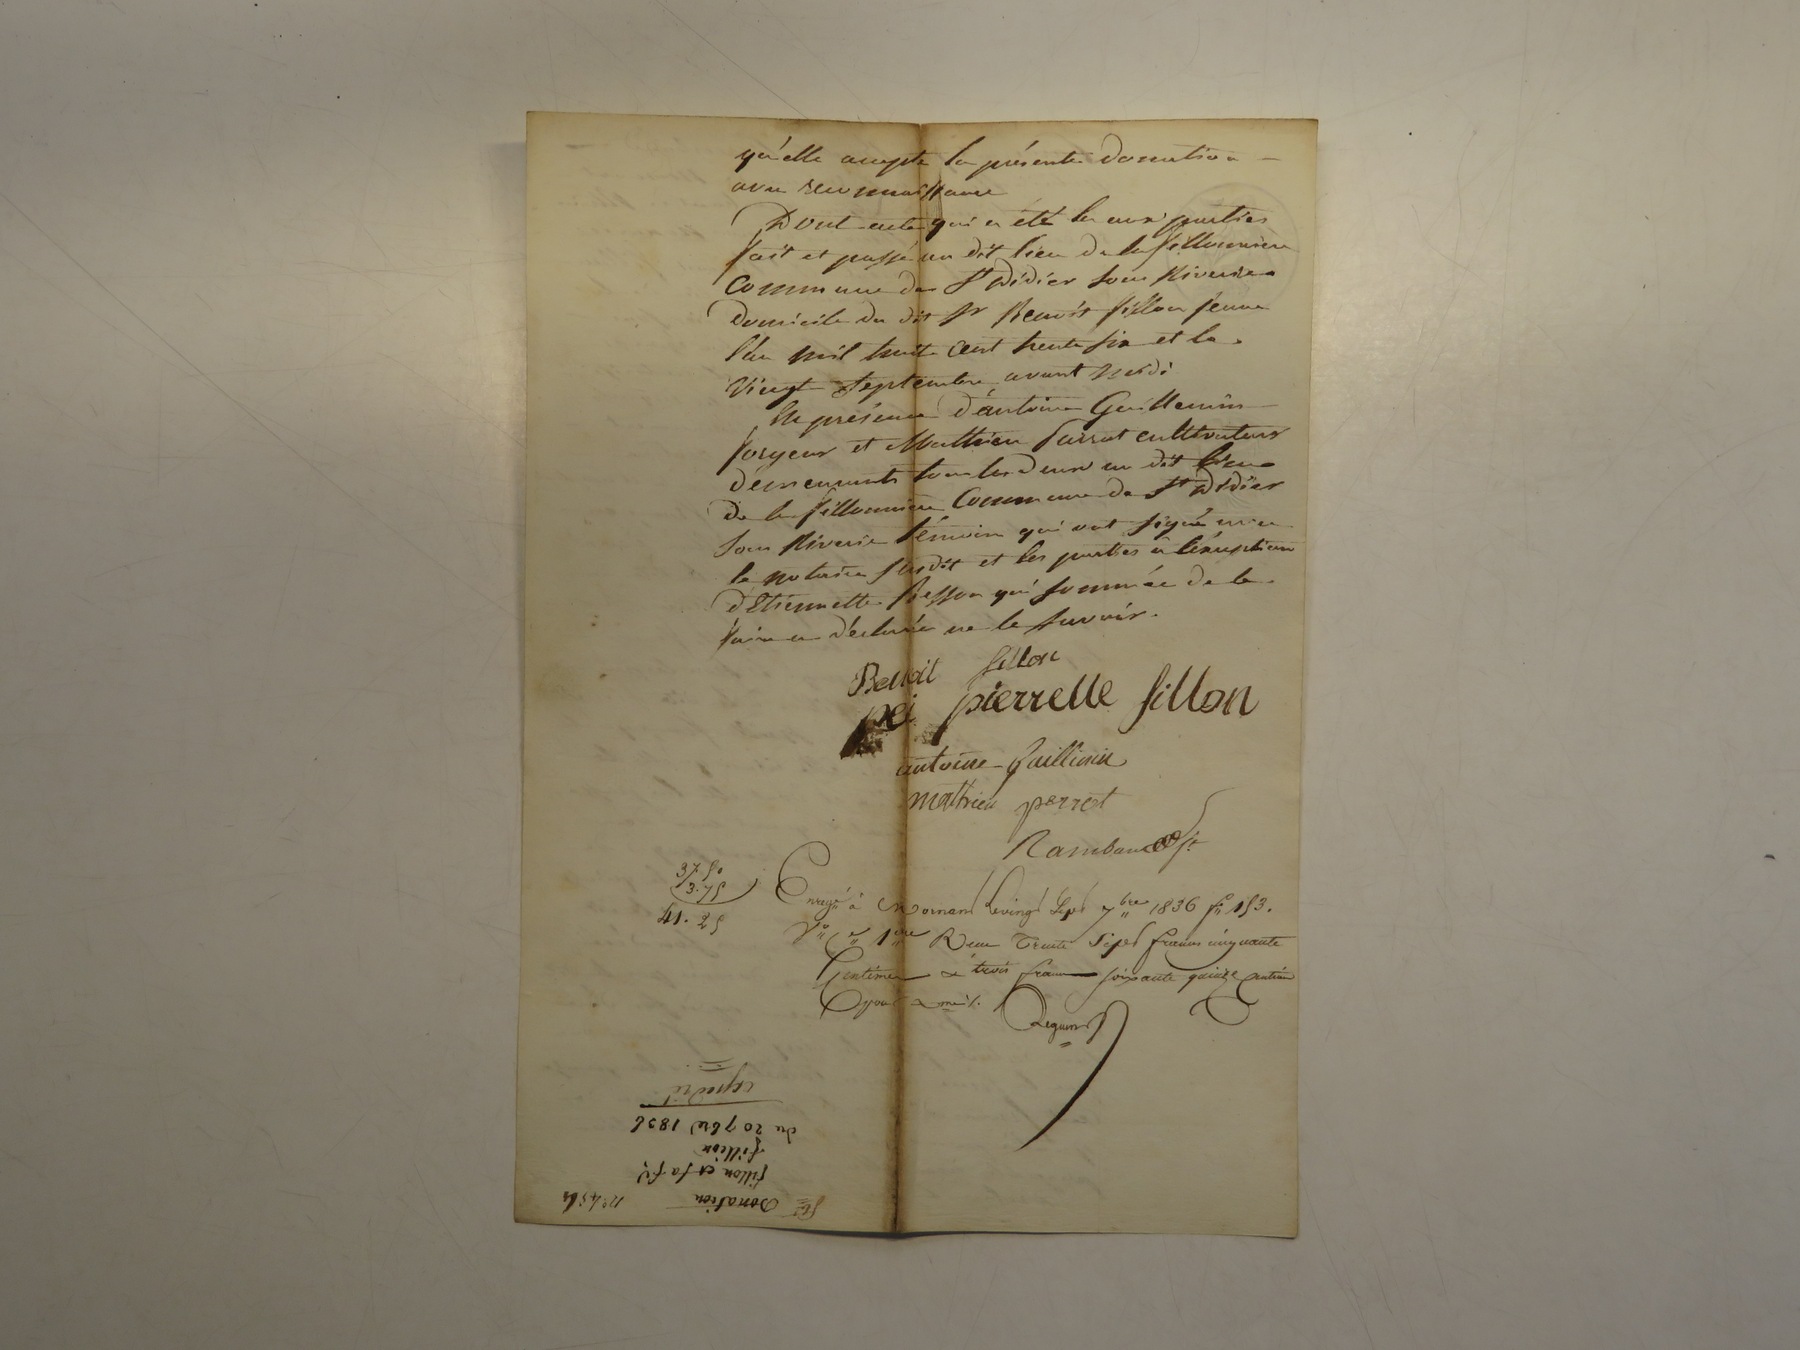 qu'elle accepte la présente donation
avec reconnaissance
Dont acte qui a été lu aux parties
fait et passé au dit lieu de la fillonnière
Commune de St Didier sous Riverie
domicile du dit Sr Benoît fillon jeune
l'an mil huit cent trente six et le
vingt Septembre avant midi
En présence d'antoine Guillermin
forgeur et Mathieu cultivateur
demeurants tous les deux au dit lieu
de la fillonnière Commune de St Didier
sous Riverie témoins qui ont signé avec
le notaire susdit et les parties à l'éxception
d'Etiennette Besson qui sommée de le
faire a déclaré ne le savoir.
Benoit fillon
pei pierrette fillon
antoine Guillimin
mathieu perrot
37.50
3.75
41.25
Enregé à Mornant le vingt Sept 7bre 1836 fo 153.
Vo Co 1ere Reçu Trente Sept francs cinquante
Centimes & trois francs soixante quinze Centimes
pour
expédié
du 20 7bre 1836
fillion
fillon et sa fe
Donation